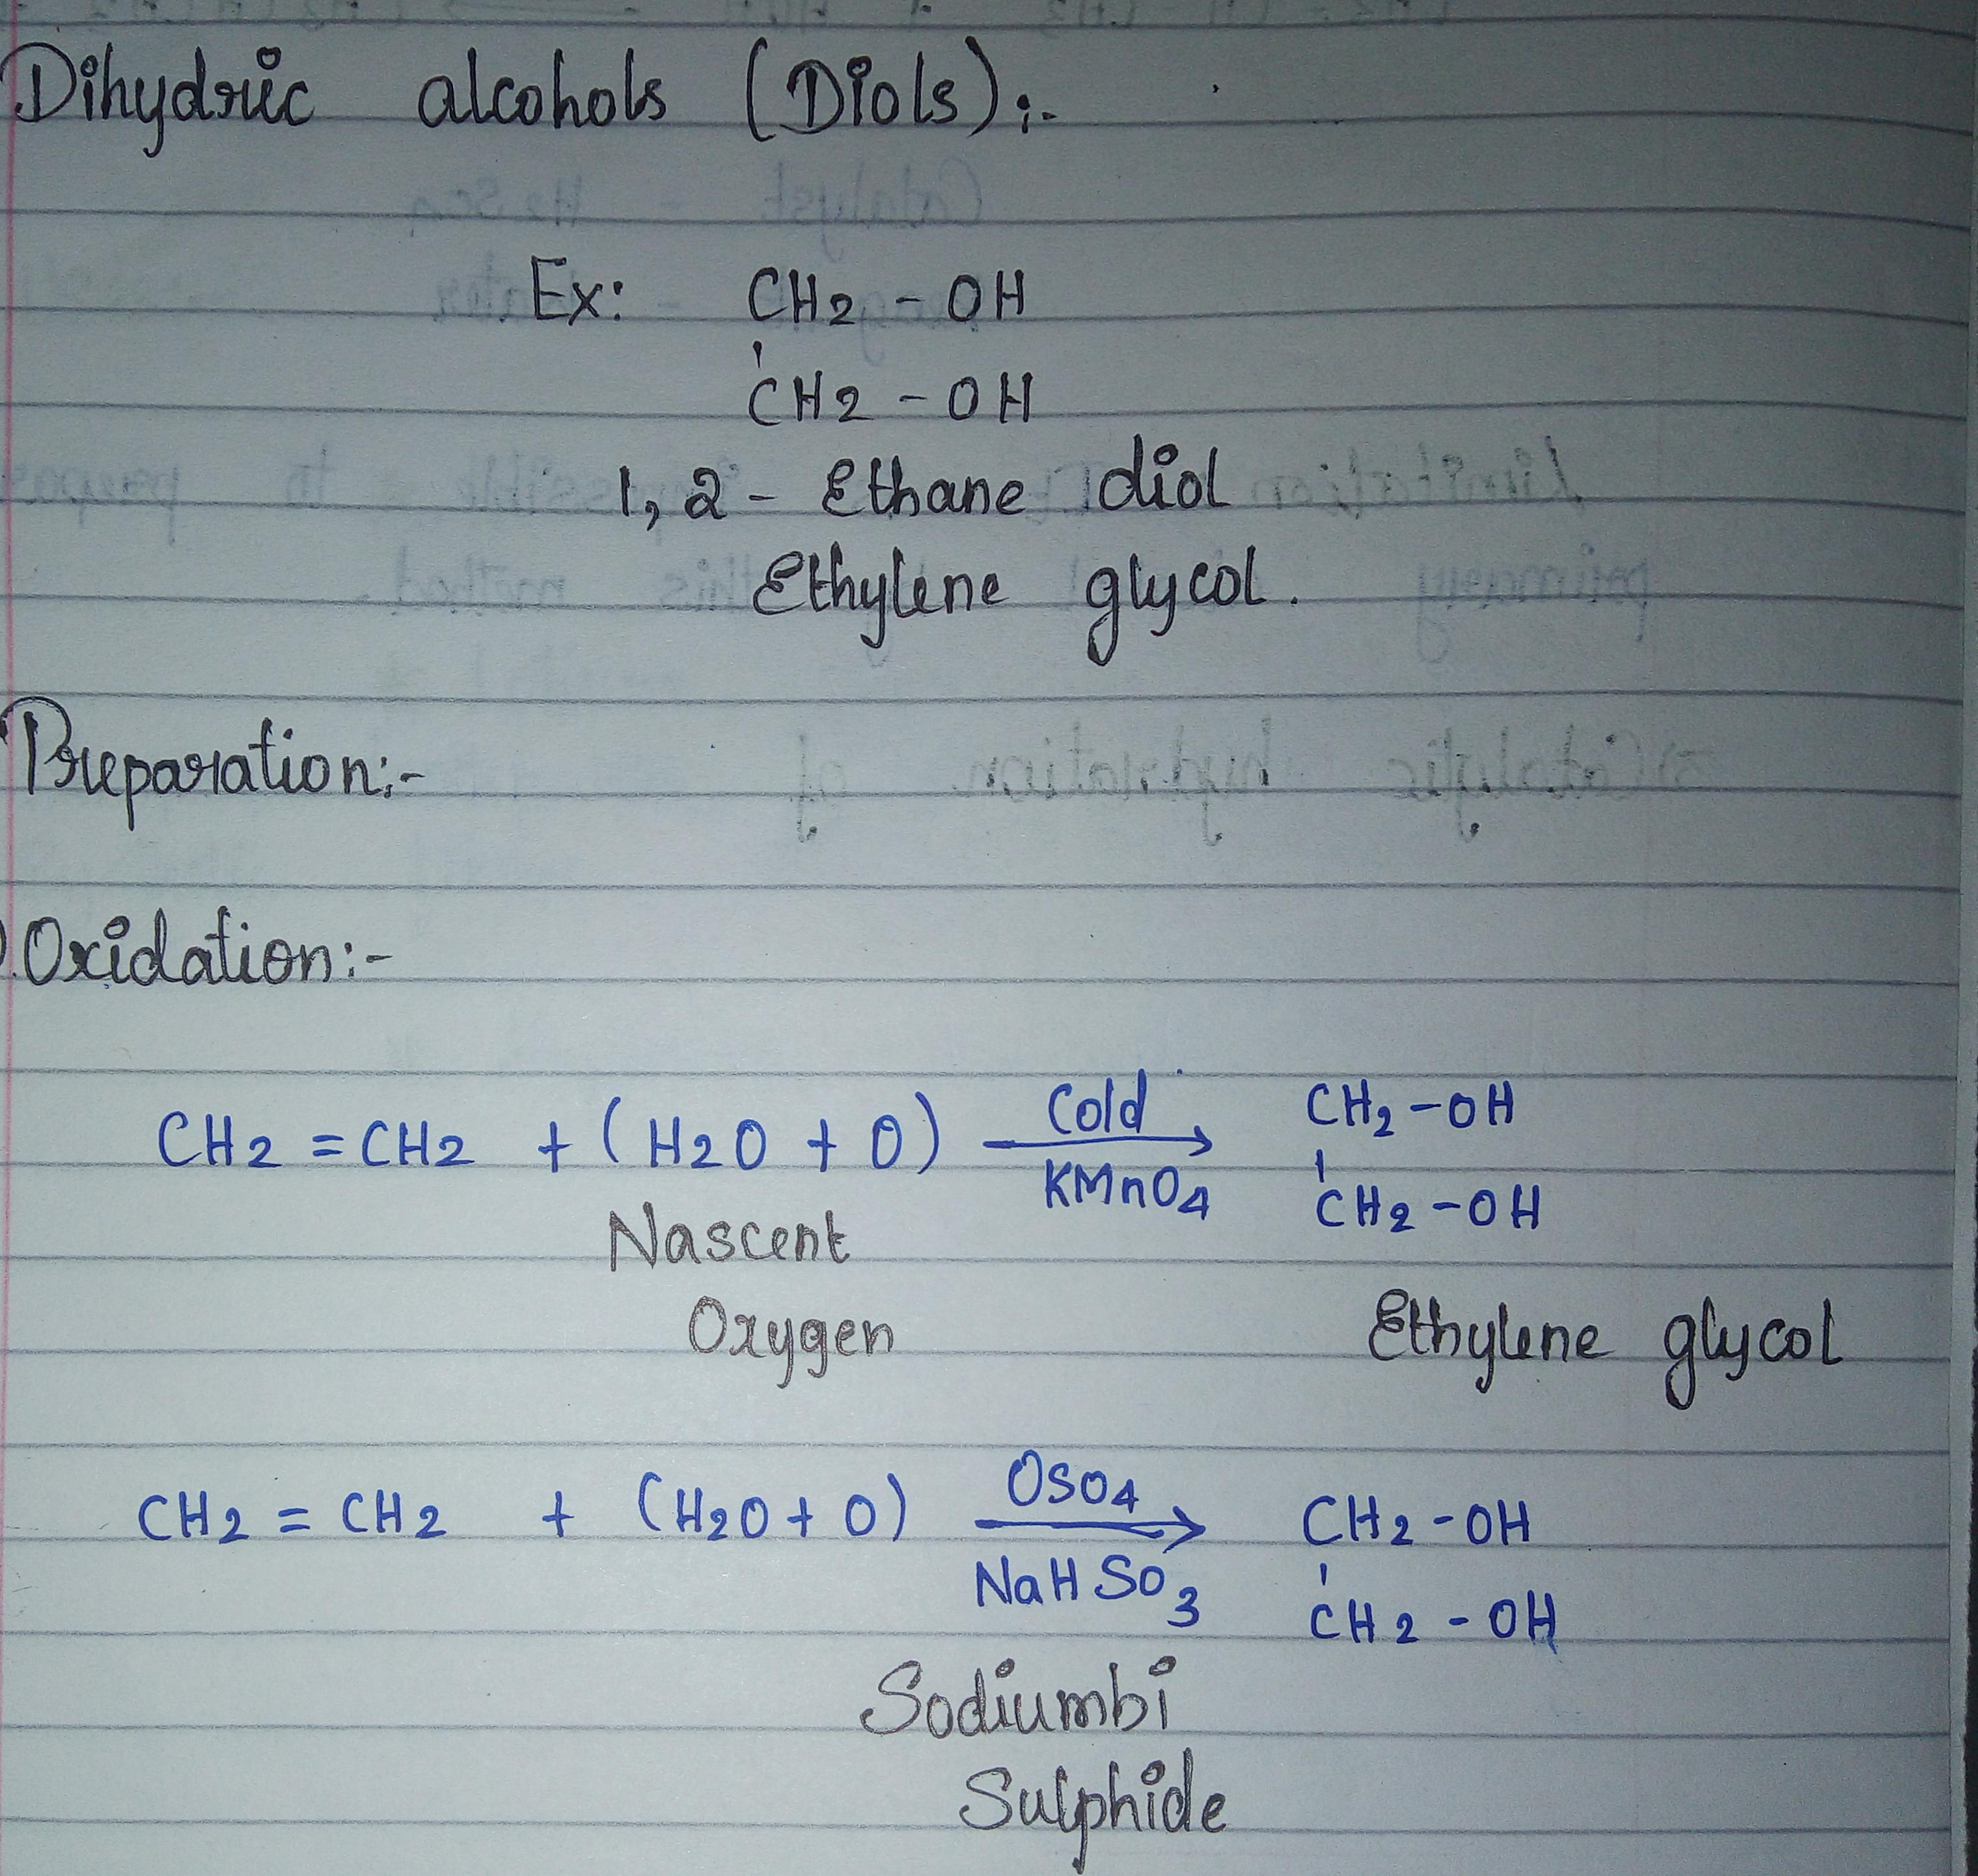 Dihydric alcohols (Diols):-
Ex: CH2 - OH
CH2 - OH
1, 2 - Ethane diol
Ethylene glycol.
Preparation:-
Oxidation:-
Cold
CH2 = CH2 + (H2O + O) → CH2 - OH
KMnO4
CH2 - OH
Nascent
Oxygen
Ethylene glycol
OSO4
CH2 = CH2 + (H2O + O) → CH2 - OH
NaHSO3
CH2 - OH
Sodiumbi
Sulphide